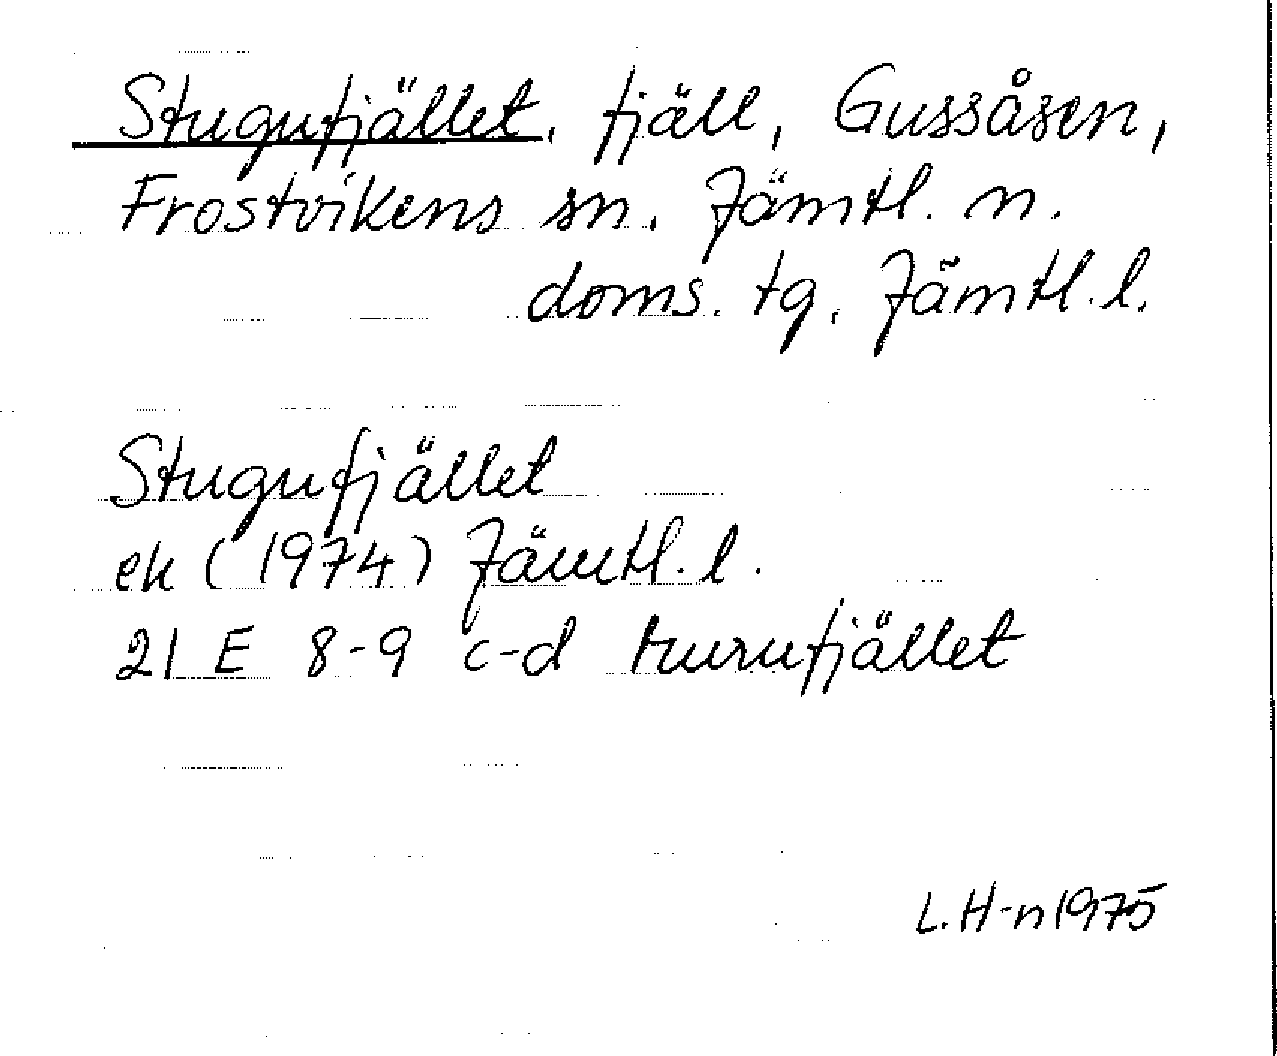 Stugufjället, fjäll, Gussåsen,
Frostvikens sn. Jämtl. n.
doms. tg, Jämtl. l.
Stugufjället
ek (1974) Jämtl. l.
21 E 8-9 c-d Murufjället
L. H-n 1975